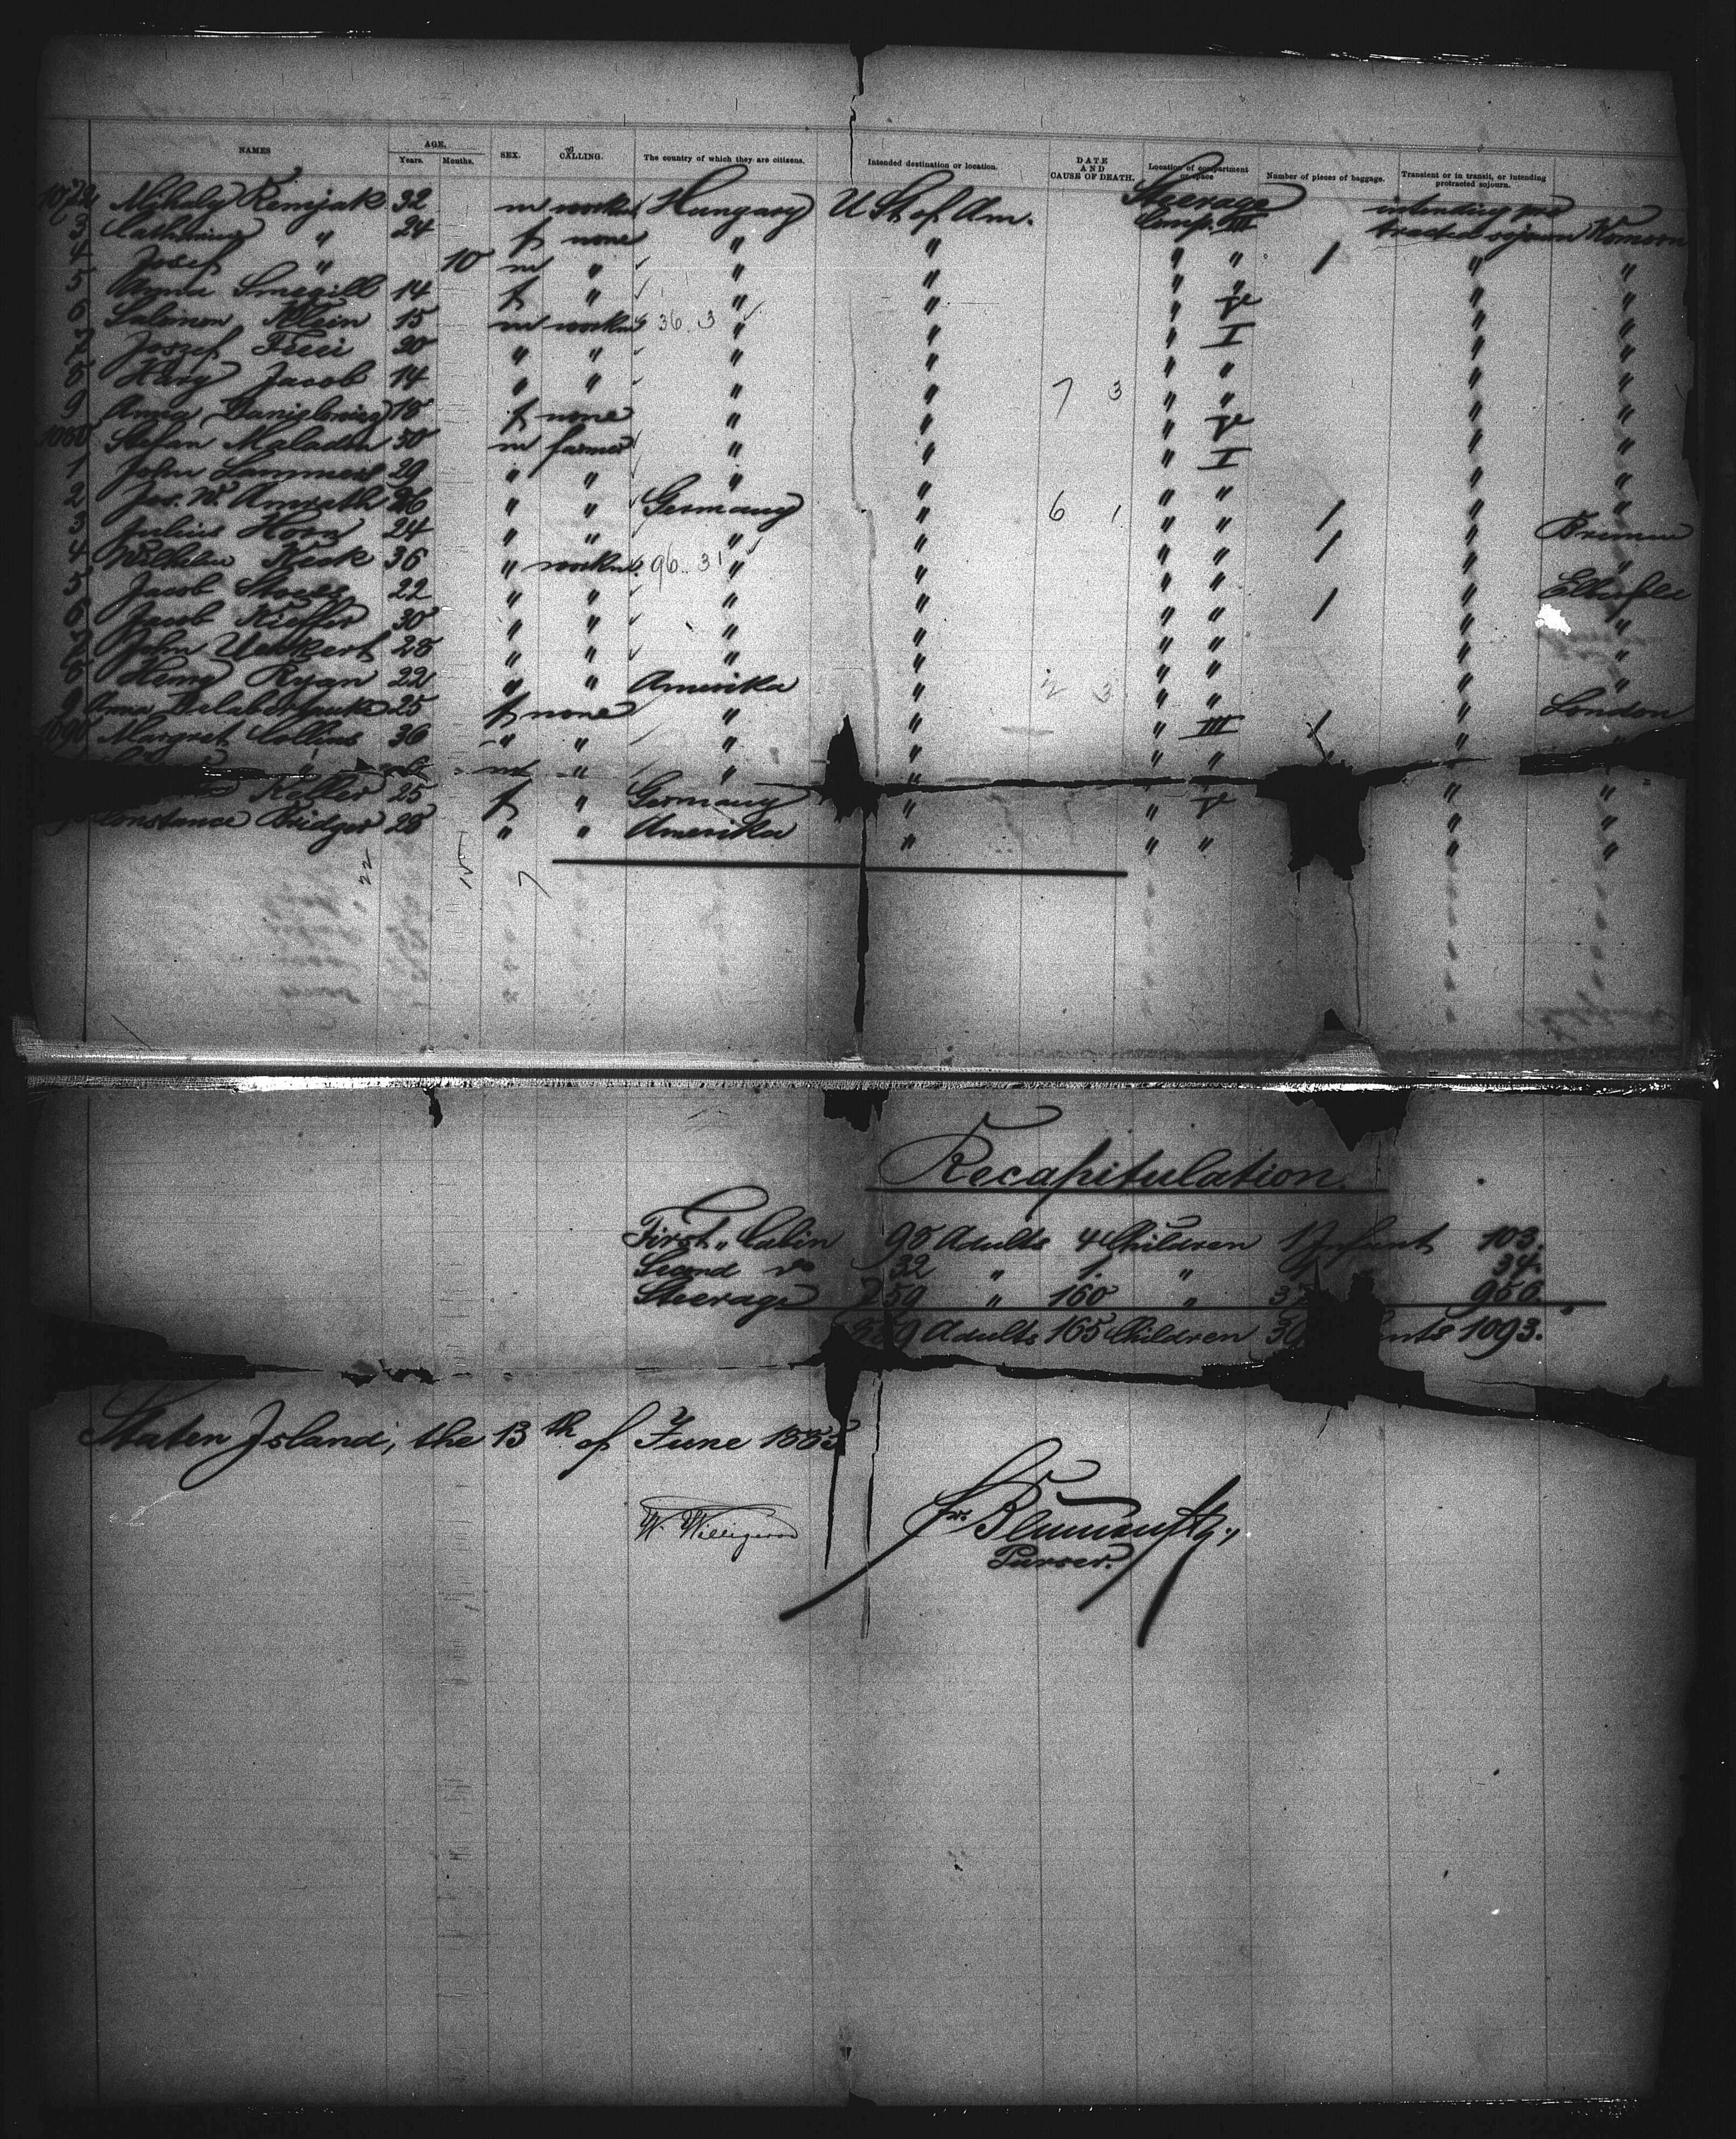 NAMES AGE. Years. Months. SEX. CALLING. The country of which they are citizens. Intended destination or location. DATE AND CAUSE OF DEATH. Location of compartment or space Number of pieces of baggage. Transient or in transit, or intending protracted sojourn.
Myhaly Remijak 32 m worker Hungary U St of Am. Steerage Comp. III intending protracted sojourn Komorn
3 Catharina " 24 f none " " " " 1 " "
4 Josef " 10 m " " " " " " "
5 Anna 14 f " " " " V " "
6 Salomon Klein 15 m worker 36.3 " " " I " "
7 Joszef Frei 20 " " " " " " " "
8 Harg Jacob 14 " " " " 7 3 " " " "
9 Anna 18 f none " " " V " "
Stefan Maladin 50 m farmer " " " I " "
1 John Lammert 29 " " " " " " " "
2 Jos. W. Amrath 26 " " Germany " 6 1 " " 1 " Bremen
3 Julius Horn 24 " " " " " " 1 " "
4 Wilhelm Keck 36 " worker 96.31 " " " " " Elberfeld
5 Jacob 22 " " " " " " 1 " "
6 Jacob Kieffer 30 " " " " " " " "
7 John Unkert 28 " " " " " " " "
8 Henry Ryan 22 " " Amerika " 2 3 " " " London
9 Anna 25 f none " " " III 1 "
Margret Collins 36 " " " " " " "
" m " " "
Keller 25 f " Germany " " V " "
Constance Bridger 28 " " Amerika " " " " "
22 15 7
Recapitulation.
First " Cabin 98 Adults 4 Children 1 Infant 103.
Second do 32 " 1. " 34.
Steerage 759 " 160 " 37 956.
889 Adults 165 Children 1093.
Staten Island, the 13th of June 1885
W. Willigerod
Purser.